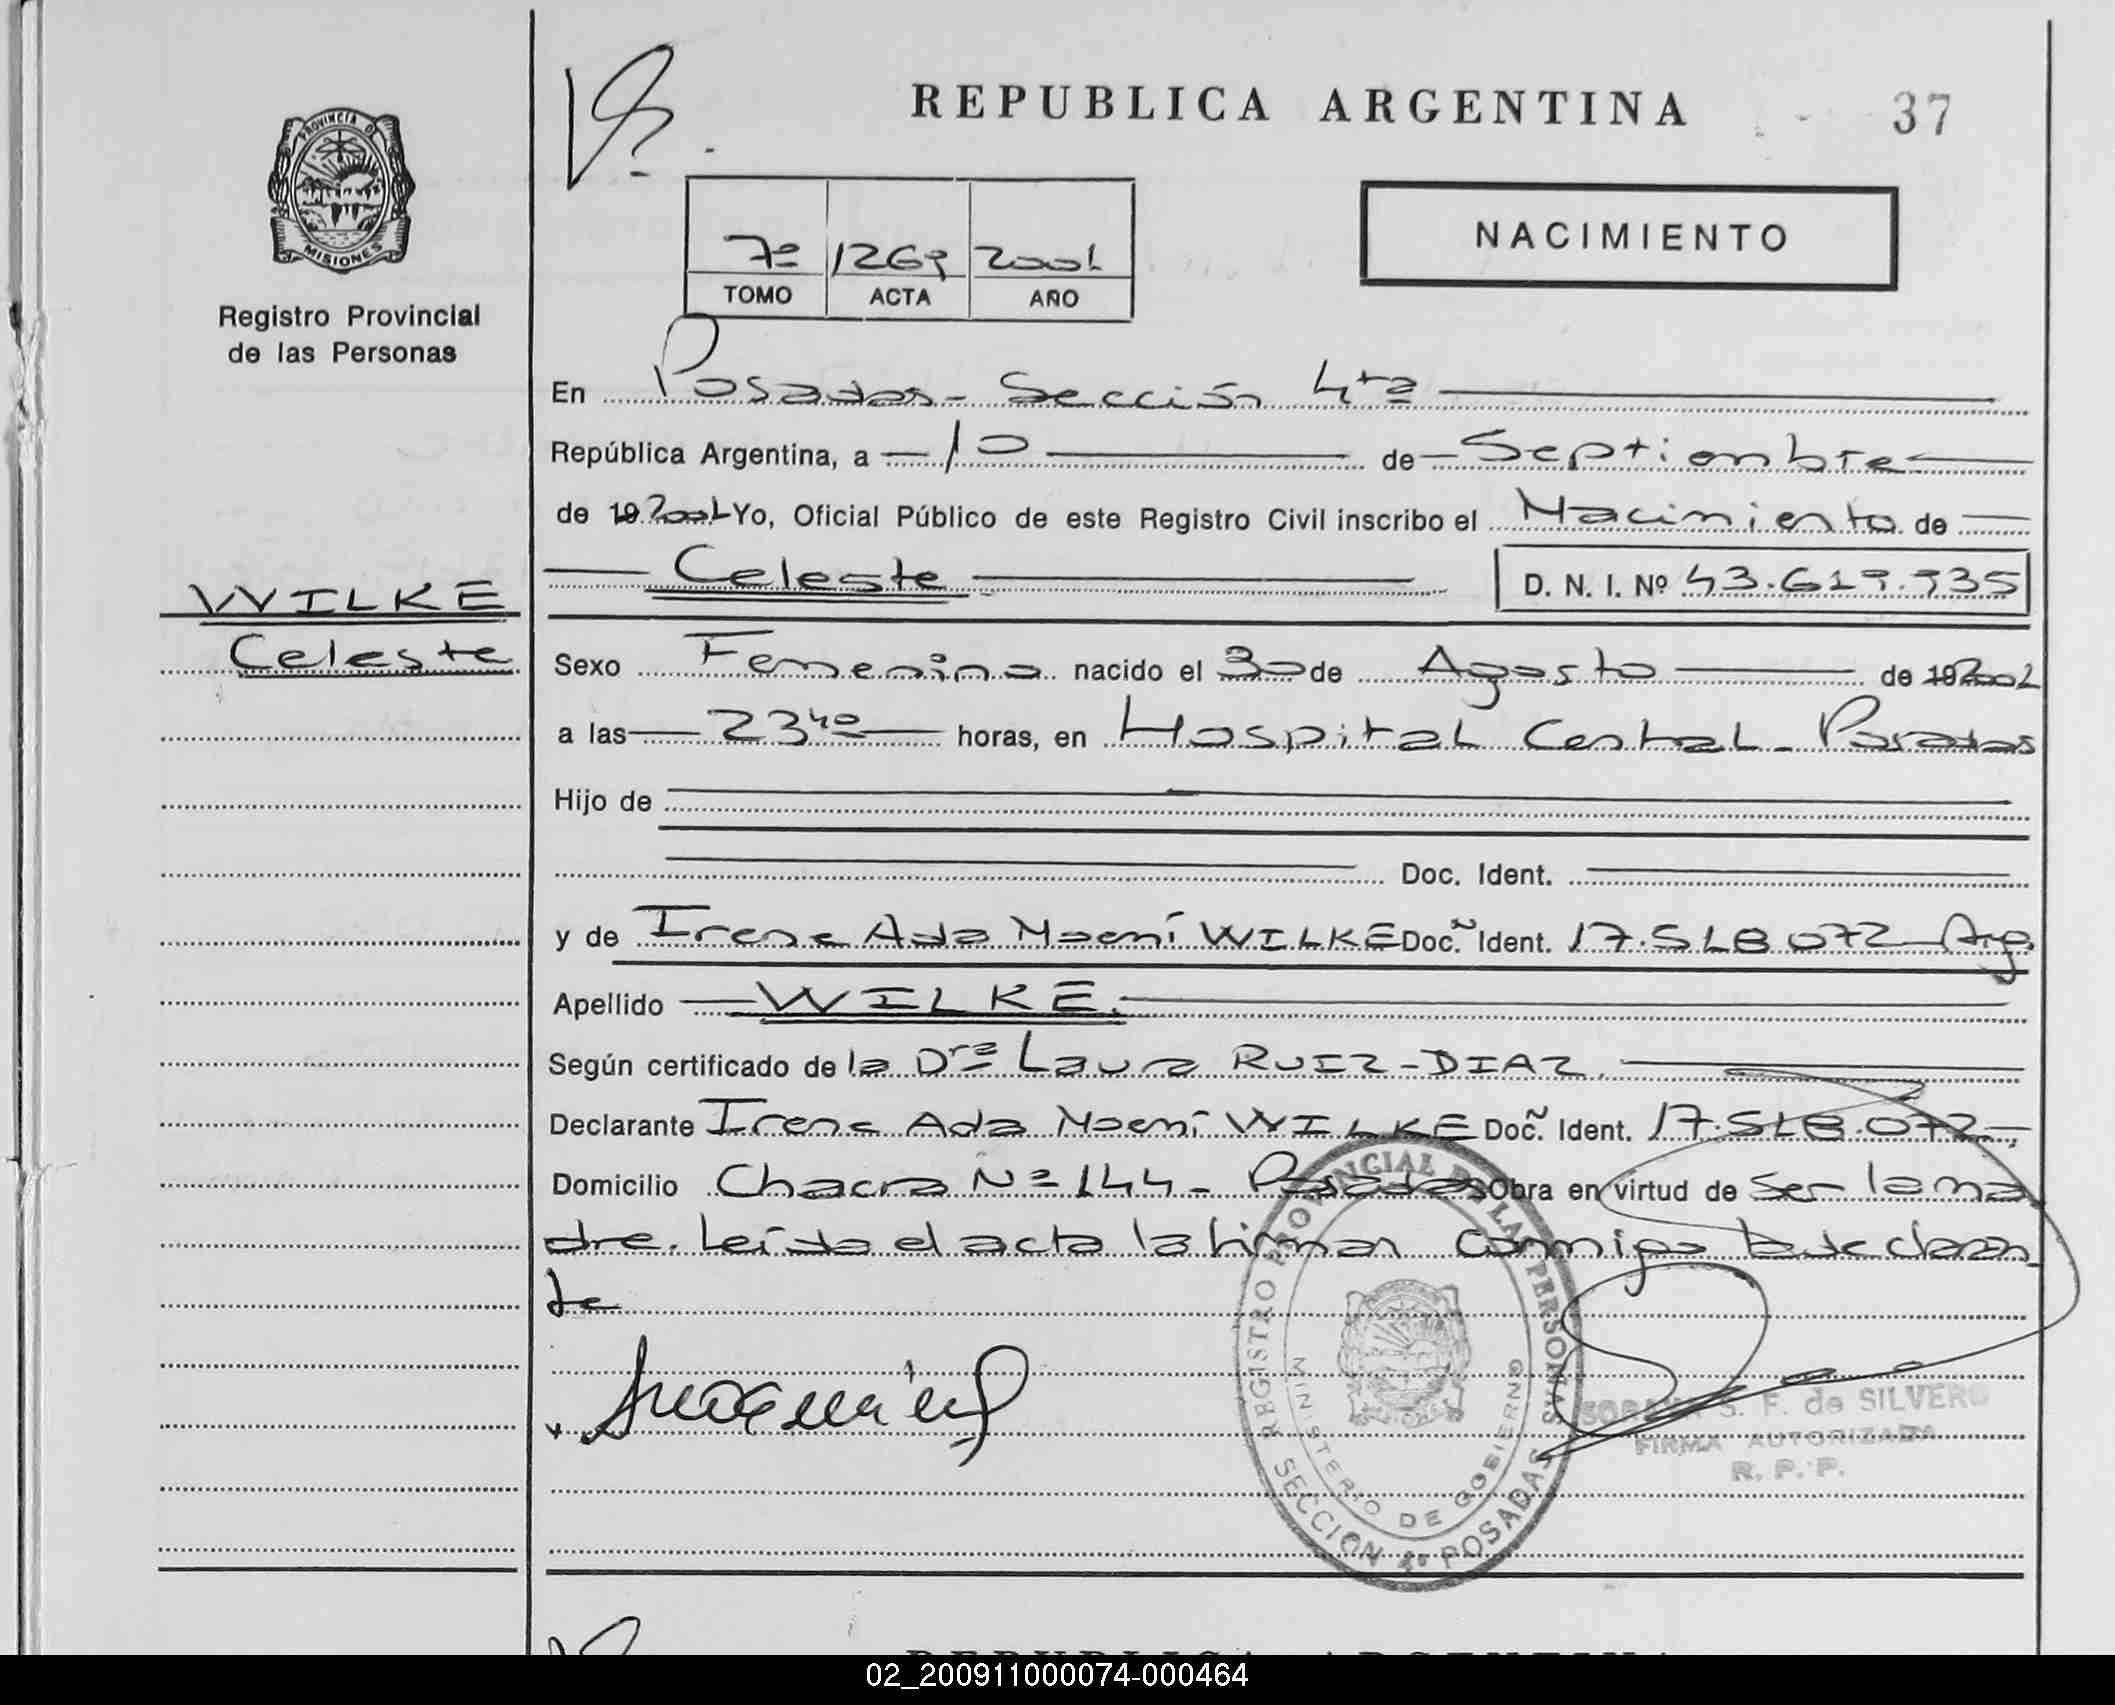 REPUBLICA ARGENTINA
37
PROVINCIA DE
MISIONES
Registro Provincial
de las Personas
7º 1269 2001
TOMO ACTA AÑO
NACIMIENTO
En Posadas - Sección 4ta
República Argentina, a 10 de Septiembre
de 19 2001 Yo, Oficial Público de este Registro Civil inscribo el Nacimiento de
Celeste D. N. I. Nº 43.619.935
WILKE
Celeste
Sexo Femenino nacido el 30 de Agosto de 19 2001
a las 23 40 horas, en Hospital Central - Posadas
Hijo de
Doc. Ident.
y de Irene Ada Noemí WILKE Doc. Ident. 17.518.072 Arg.
Apellido WILKE.
Según certificado de la Dra Laura RUIZ-DIAZ.
Declarante Irene Ada Noemí WILKE Doc. Ident. 17.518.072
Domicilio Chacra Nº 144 - Posadas Obra en virtud de ser la ma
dre. Leída el acta la firman conmigo la declaran
te
REGISTRO PROVINCIAL DE LAS PERSONAS
MINISTERIO DE GOBIERNO
SECCION 4º POSADAS
S. F. de SILVERO
FIRMA AUTORIZADA
R. P. P.
REPUBLICA ARGENTINA
02_200911000074-000464